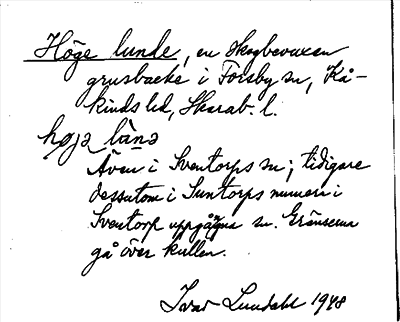 Höge lunde, en skogbevuxen
grusbacke i Forsby sn, Kå-
kinds hd, Skarab. l.
høgə lùn̠ə
Även i Sventorps sn; tidigare
dessutom i Suntorps numera i
Sventorp uppgångna sn. Gränserna
gå över kullen.
Ivar Lundahl 1948